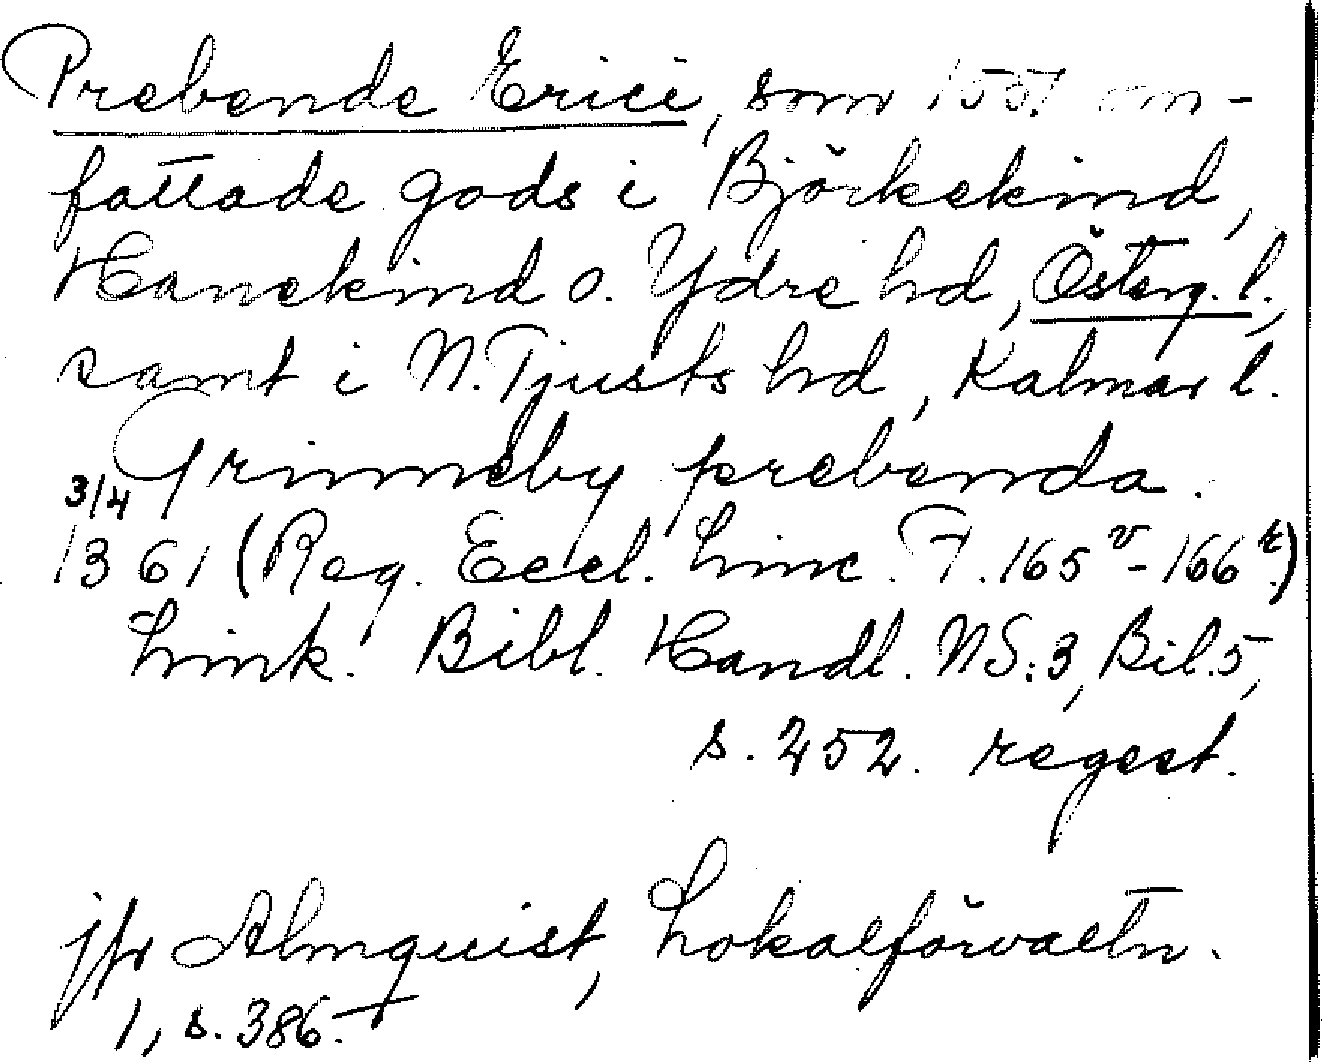 Prebende Erici, som 1551 om-
fattade gods i Björkekind,
Hanekind o. Ydre hd, Österg. l.,
samt i N. Tjusts hd, Kalmar l.
Grinneby prebenda.
3/4
1361 (Reg. Eccl. Linc. F. 165v-166r)
Link. Bibl. Handl. NS:3, Bil. 5,
s. 252. regest.
jfr Almquist, Lokalförvaltn.
1, s. 386.